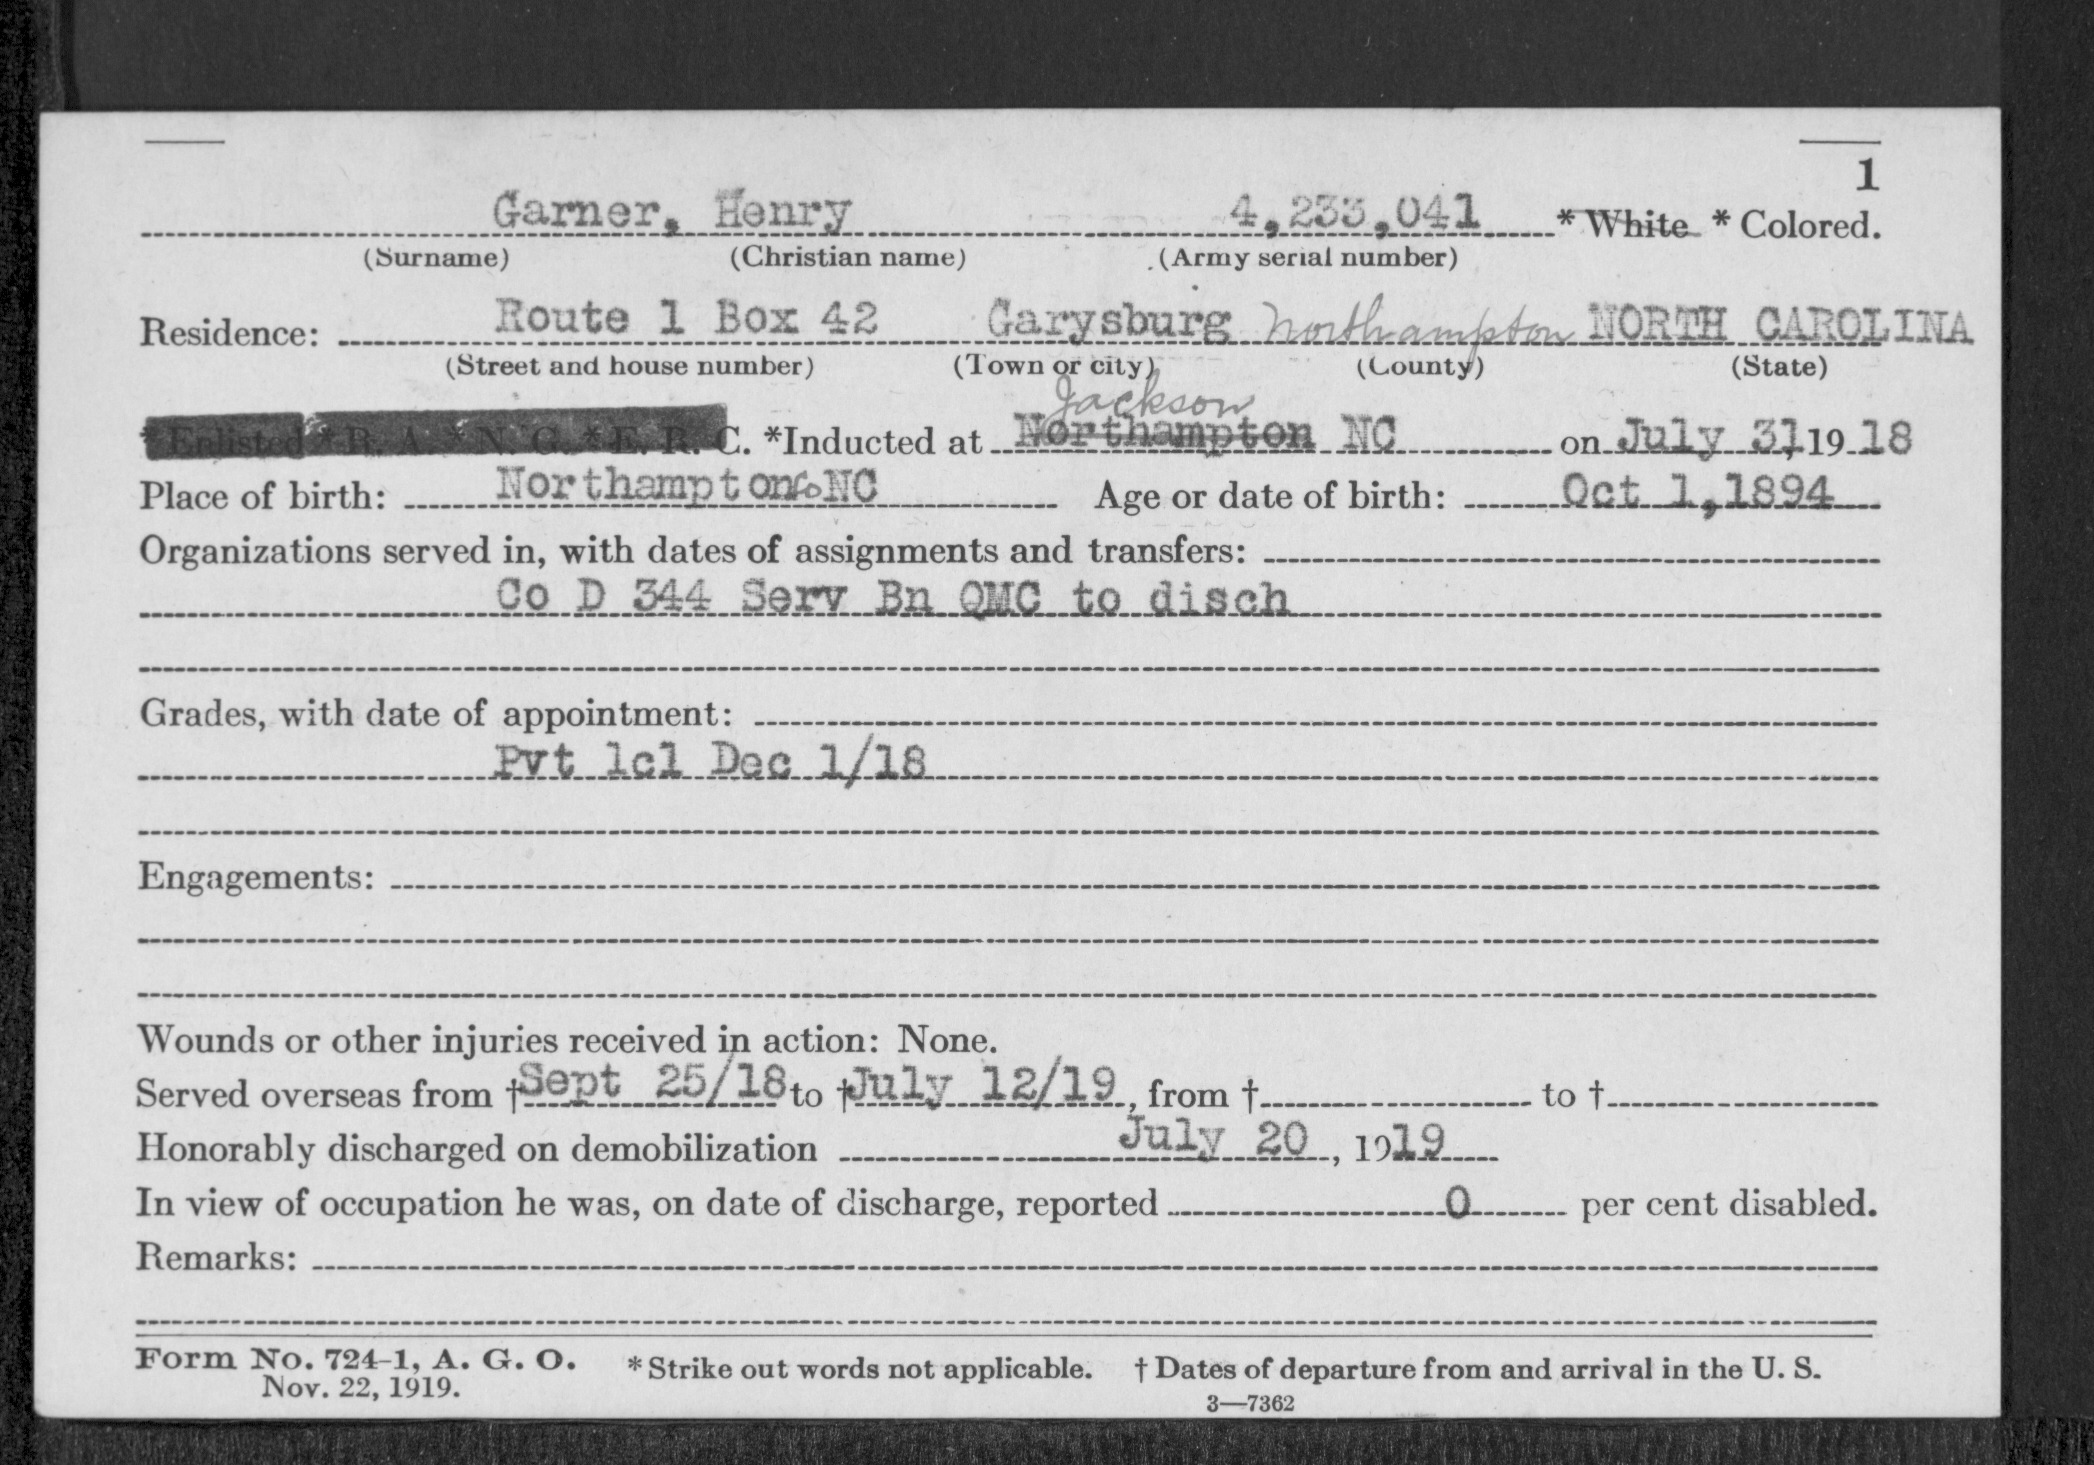 1
Garner, Henry 4,233,041 * White * Colored.
(Surname) (Christian name) (Army serial number)
Residence: Route 1 Box 42 Garysburg Northampton NORTH CAROLINA
(Street and house number) (Town or city) (County) (State)
Jackson
* Enlisted * R. A. * N. G. * E. R. C. *Inducted at Northampton NC on July 31, 19 18
Place of birth: Northampton Co NC Age or date of birth: Oct 1, 1894
Organizations served in, with dates of assignments and transfers:
Co D 344 Serv Bn QMC to disch
Grades, with date of appointment:
Pvt 1cl Dec 1/18
Engagements:
Wounds or other injuries received in action: None.
Served overseas from † Sept 25/18 to † July 12/19, from † to †
Honorably discharged on demobilization July 20, 1919
In view of occupation he was, on date of discharge, reported 0 per cent disabled.
Remarks:
Form No. 724-1, A. G. O. * Strike out words not applicable. † Dates of departure from and arrival in the U. S.
Nov. 22, 1919. 3—7362